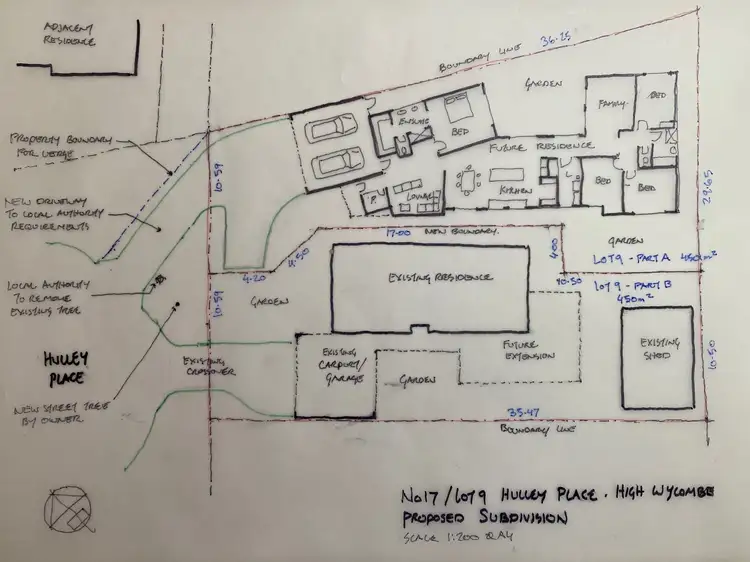 ADJACENT
RESIDENCE
BOUNDARY LINE
36.25
GARDEN
FAMILY
BED
ENSUITE
BED
PROPERTY BOUNDARY
FOR VERGE
FUTURE RESIDENCE
10.59
NEW DRIVEWAY
TO LOCAL AUTHORITY
REQUIREMENTS
P.
LOUNGE
KITCHEN
L
BED
BED
29.65
17.00
NEW BOUNDARY.
4.50
4.00
GARDEN
LOT 9 - PART A 450m²
4.20
10.50
LOT 9 - PART B
450m²
LOCAL AUTHORITY
TO REMOVE
EXISTING TREE
10.59
GARDEN
EXISTING RESIDENCE
HULLEY
PLACE
EXISTING
CROSSOVER
EXISTING
CARPORT/
GARAGE
GARDEN
FUTURE
EXTENSION
EXISTING
SHED
10.50
NEW STREET TREE
BY OWNER
35.47
BOUNDARY LINE
No17/LOT 9 HULLEY PLACE. HIGH WYCOMBE
PROPOSED SUBDIVISION
SCALE 1:200 @ A4